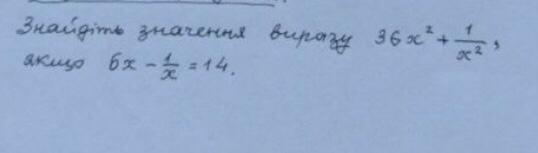 Знайдіть значення виразу 36x² + 1/x²,
якщо 6x - 1/x = 14.